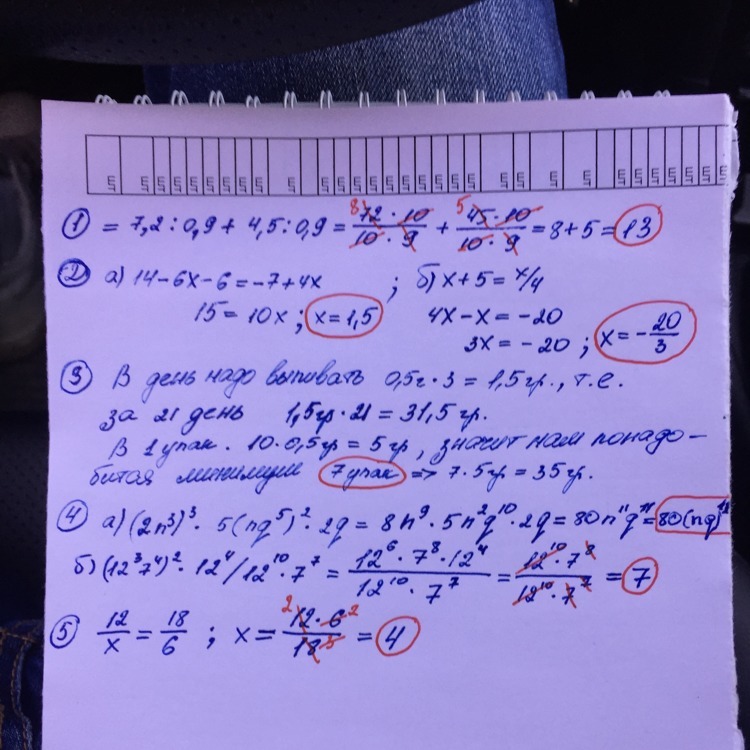 ① = 7,2 : 0,9 + 4,5 : 0,9 = 8 72 · 10 / 10 · 9 + 5 45 · 10 / 10 · 9 = 8 + 5 = 13
② а) 14 - 6x - 6 = -7 + 4x ; б) x + 5 = x/4
15 = 10x ; x = 1,5 4x - x = -20
3x = -20 ; x = - 20/3
③ В день надо выпивать 0,5г · 3 = 1,5гр., т.е.
за 21 день 1,5гр · 21 = 31,5гр.
В 1 упак. 10 · 0,5гр = 5гр, значит нам понадо-
бится 7 упак => 7 · 5гр = 35гр.
④ а) (2n³)³ · 5(nq⁵)² · 2q = 8n⁹ · 5n²q¹⁰ · 2q = 80n¹¹q¹¹ = 80(nq)¹¹
б) (12³7⁴)² · 12⁴ / 12¹⁰ · 7⁷ = 12⁶ · 7⁸ · 12⁴ / 12¹⁰ · 7⁷ = 12¹⁰ · 7⁸ / 12¹⁰ · 7⁷ = 7
⑤ 12/x = 18/6 ; x = 2 12 · 6 2 / 18 3 = 4